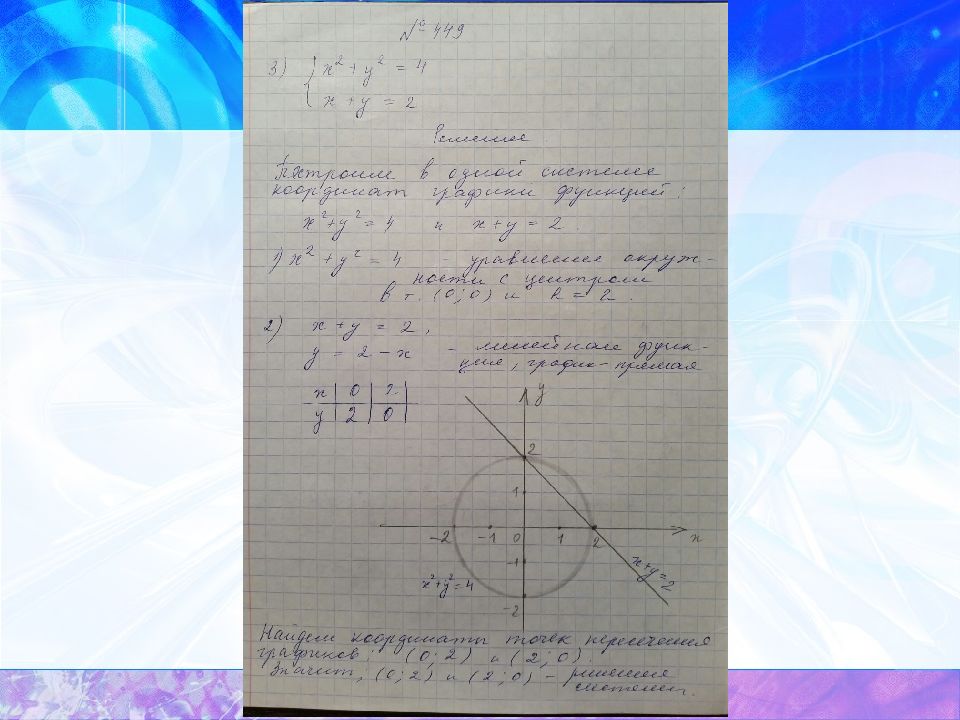 № 449
3) { x² + y² = 4
x + y = 2
Решение.
Построим в одной системе
координат графики функций:
x² + y² = 4 и x + y = 2.
1) x² + y² = 4 - уравнение окруж-
ности с центром
в т. (0; 0) и R = 2.
2) x + y = 2,
y = 2 - x - линейная функ-
ция, график - прямая
x | 0 | 2
y | 2 | 0
y
2
1
-2 -1 0 1 2 x
-1
x + y = 2
x² + y² = 4
-2
Найдем координаты точек пересечения
графиков: (0; 2) и (2; 0).
Значит, (0; 2) и (2; 0) - решения
системы.